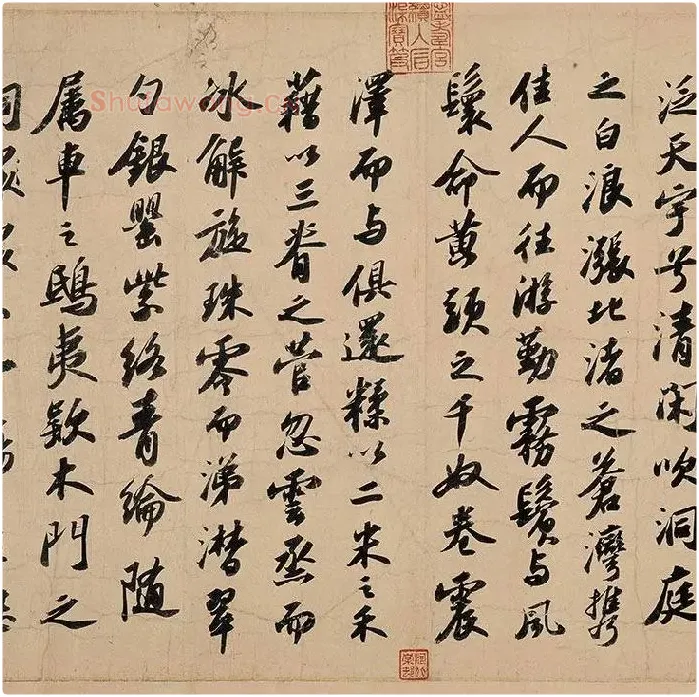 泛天宇兮清閑吹洞庭
之白浪漲北渚之蒼灣攜
佳人而往游勤霧鬢与風
鬟命黄頭之千奴卷震
澤而与俱還糅以二米之禾
藉以三脊之菅忽雲烝而
冰解旋珠零而涕潸翠
勺銀罌紫絡青綸随
属車之鴟夷款木門之
Shufawang.cn